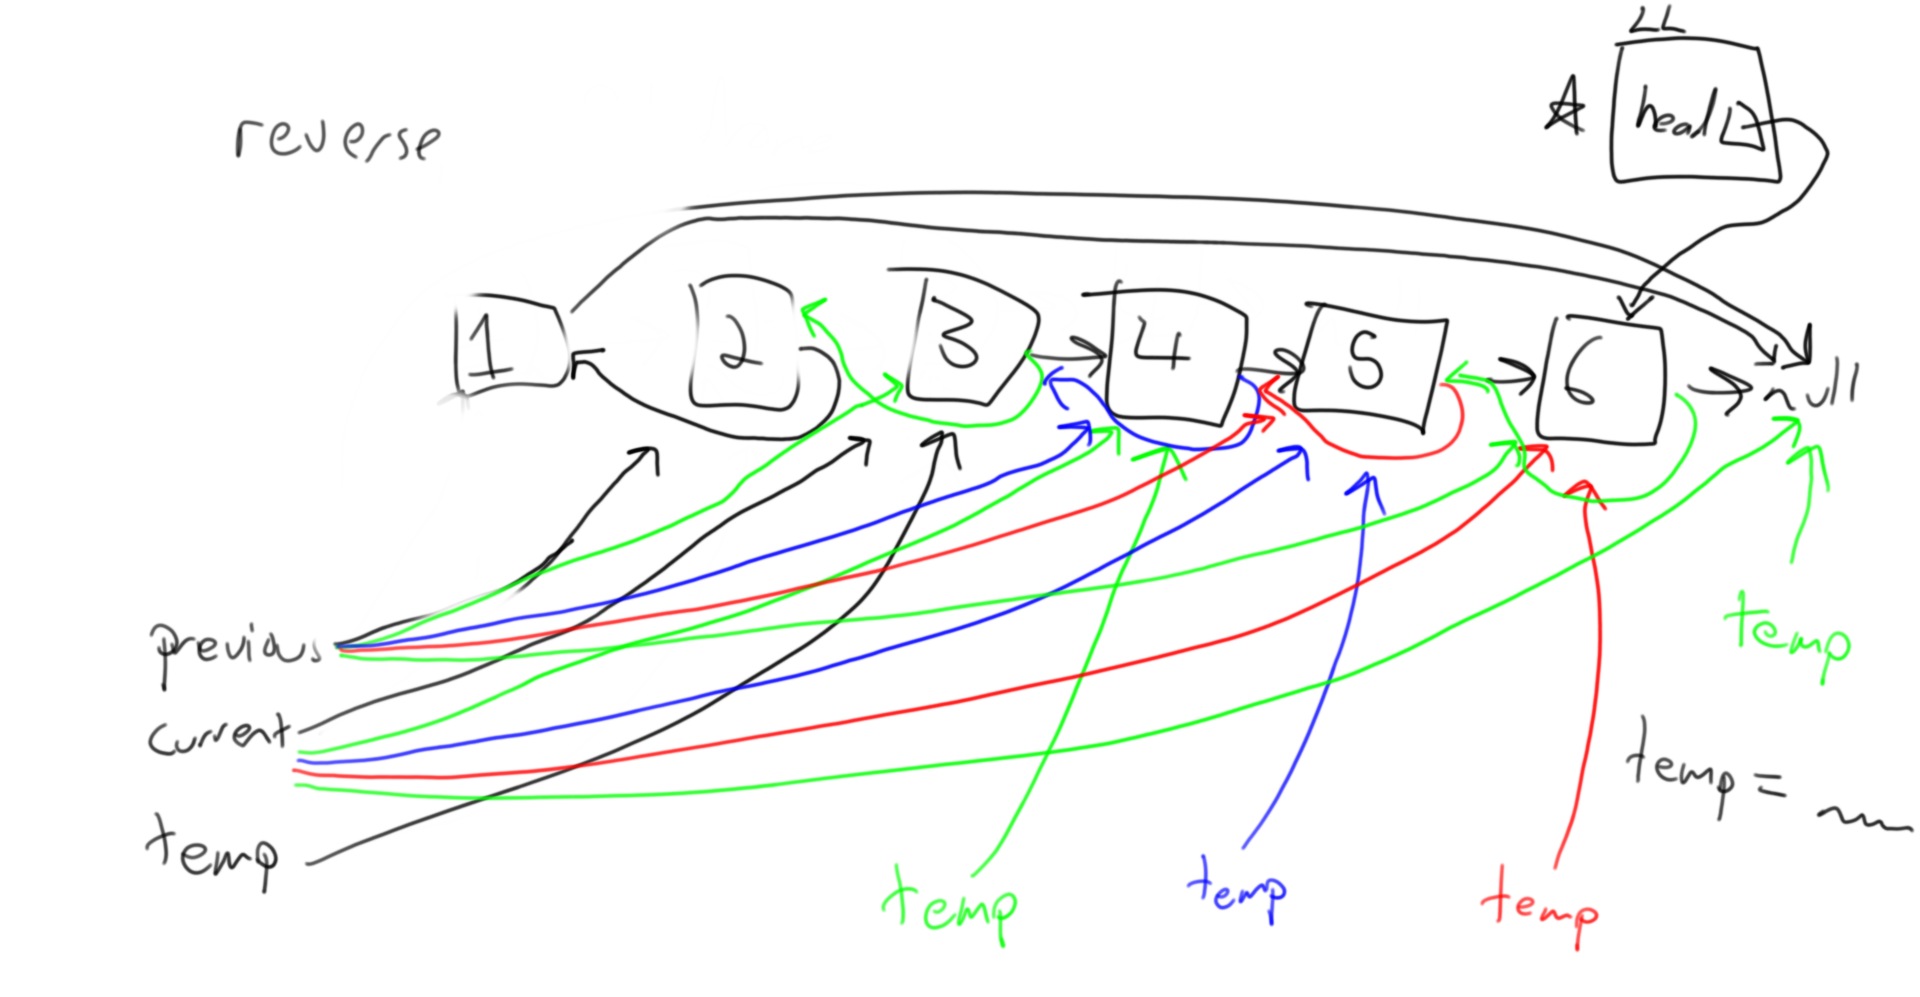 LL
head
reverse
1 2 3 4 5 6 null
previous
temp
current
temp =
temp
temp temp temp